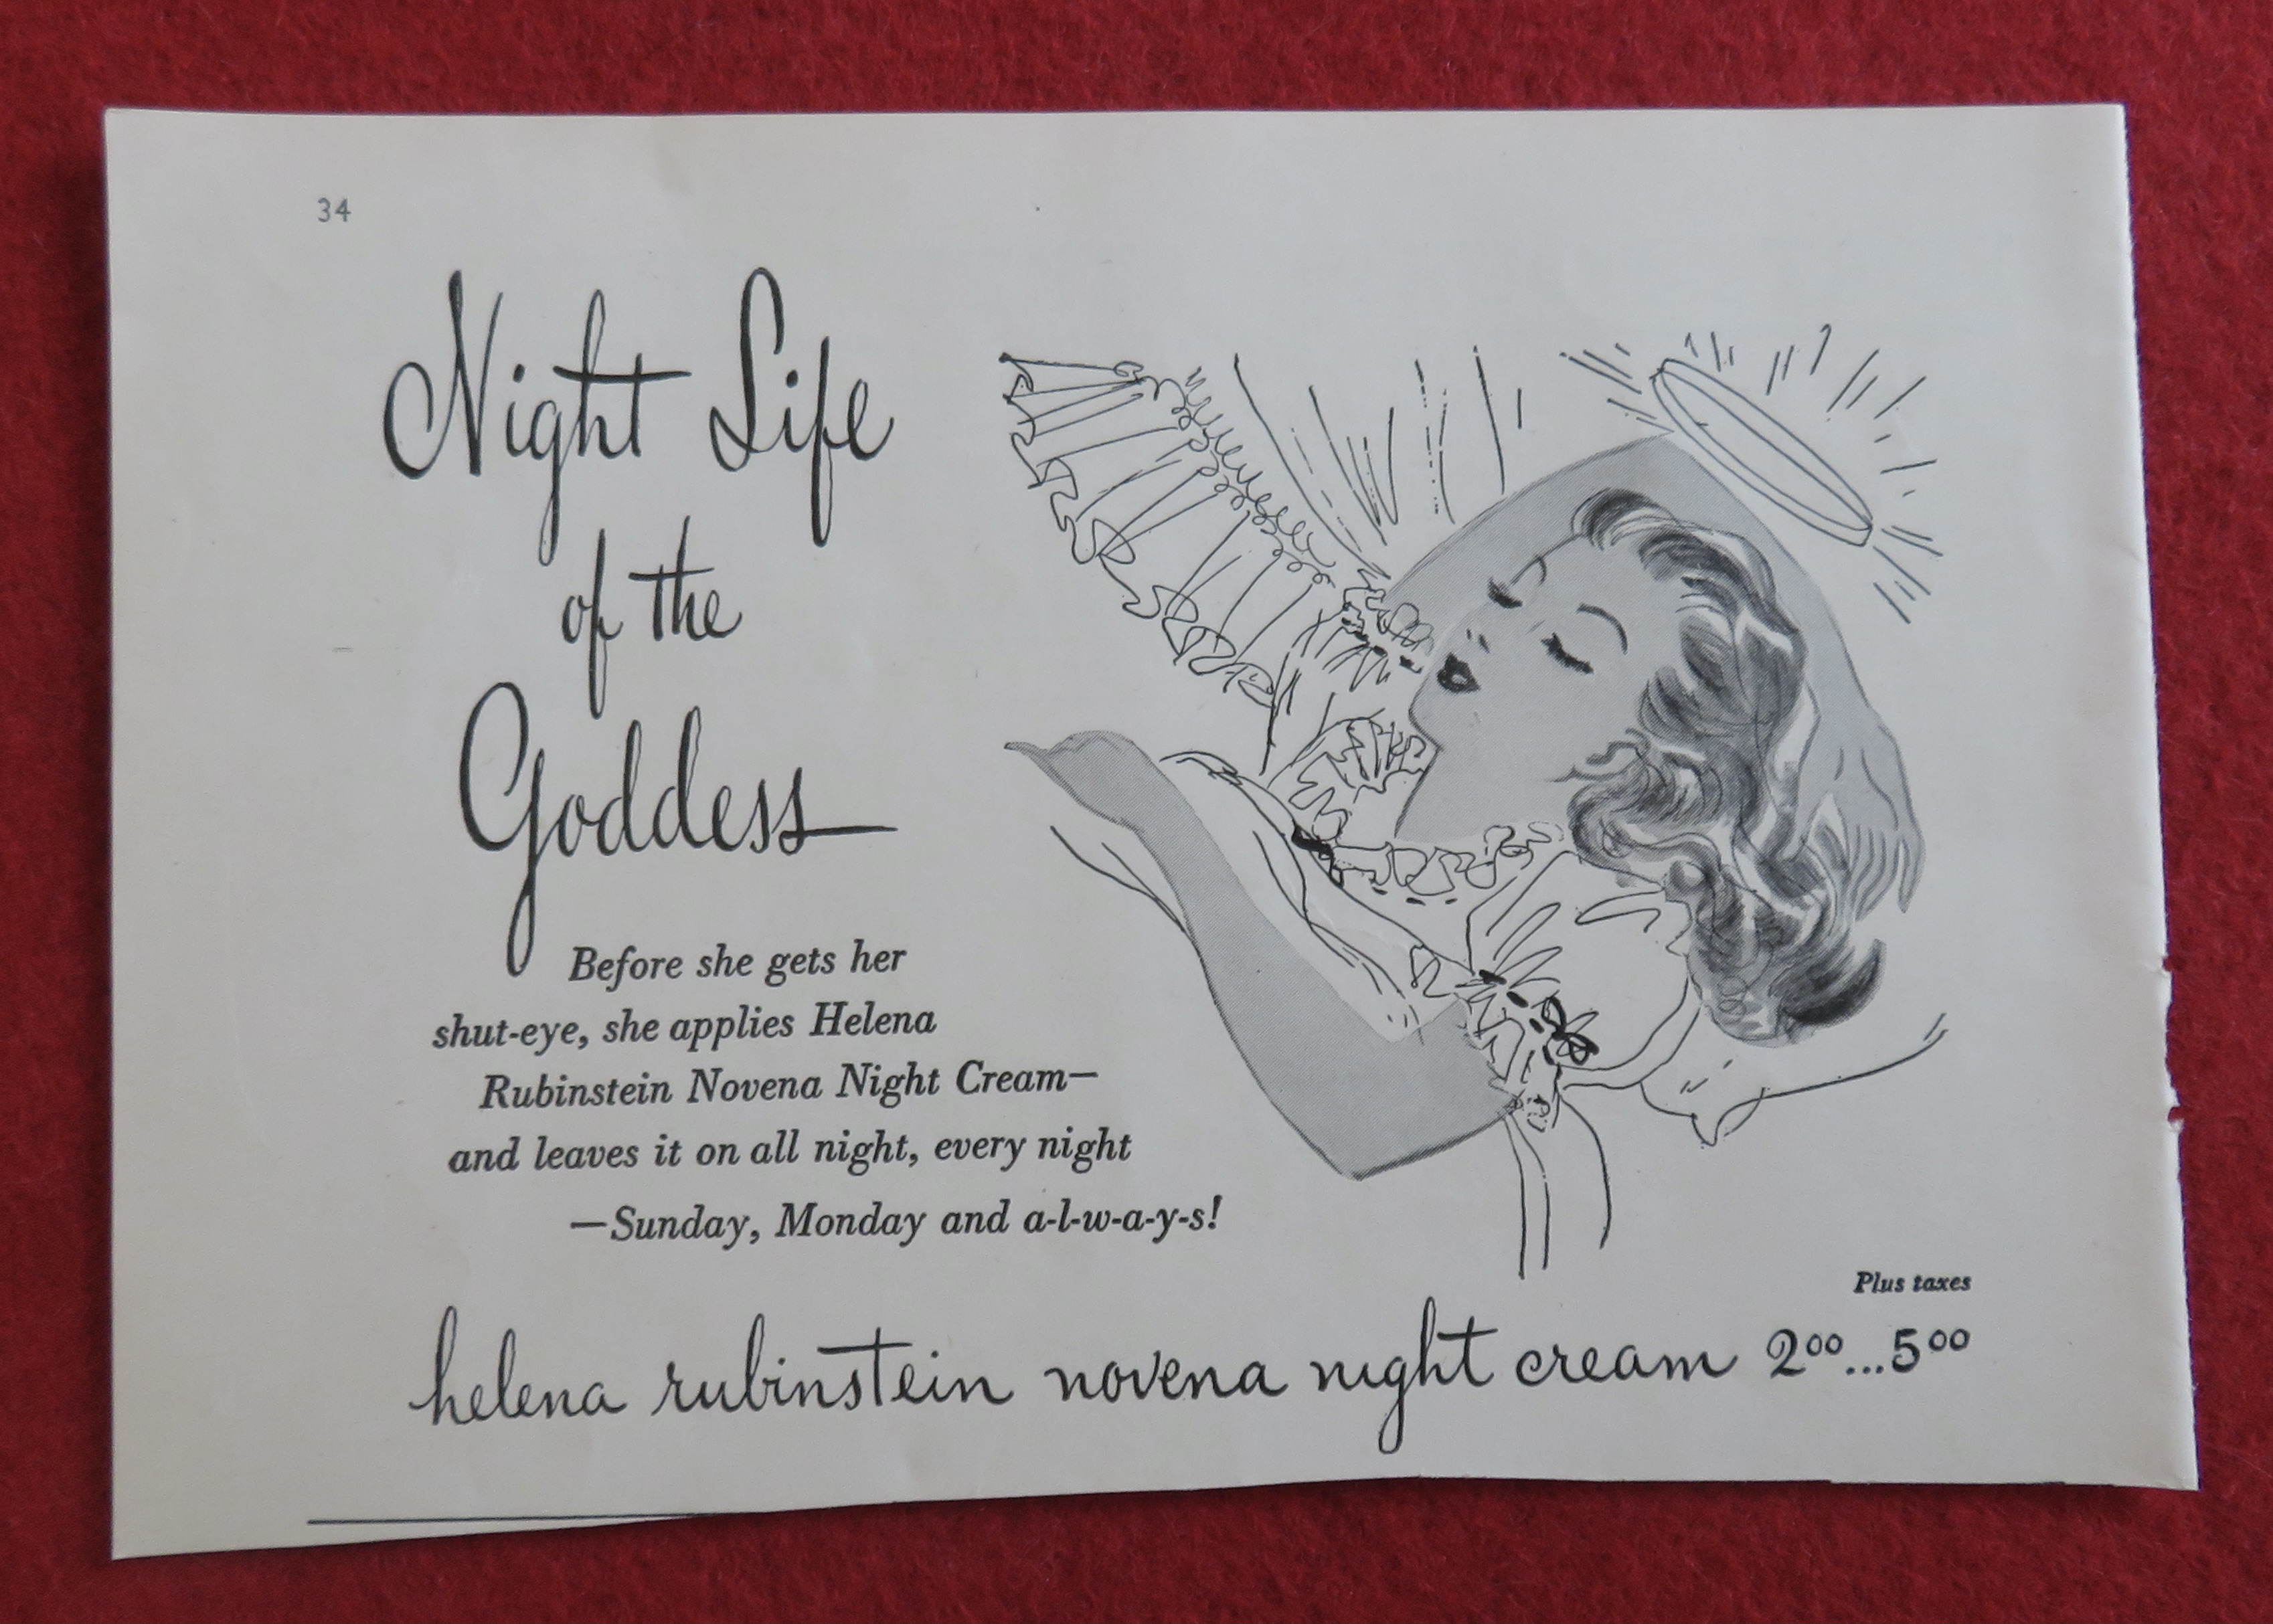 34
Night Life
of the
Goddess
Before she gets her
shut-eye, she applies Helena
Rubinstein Novena Night Cream—
and leaves it on all night, every night
—Sunday, Monday and a-l-w-a-y-s!
Plus taxes
helena rubinstein novena night cream 2⁰⁰...5⁰⁰